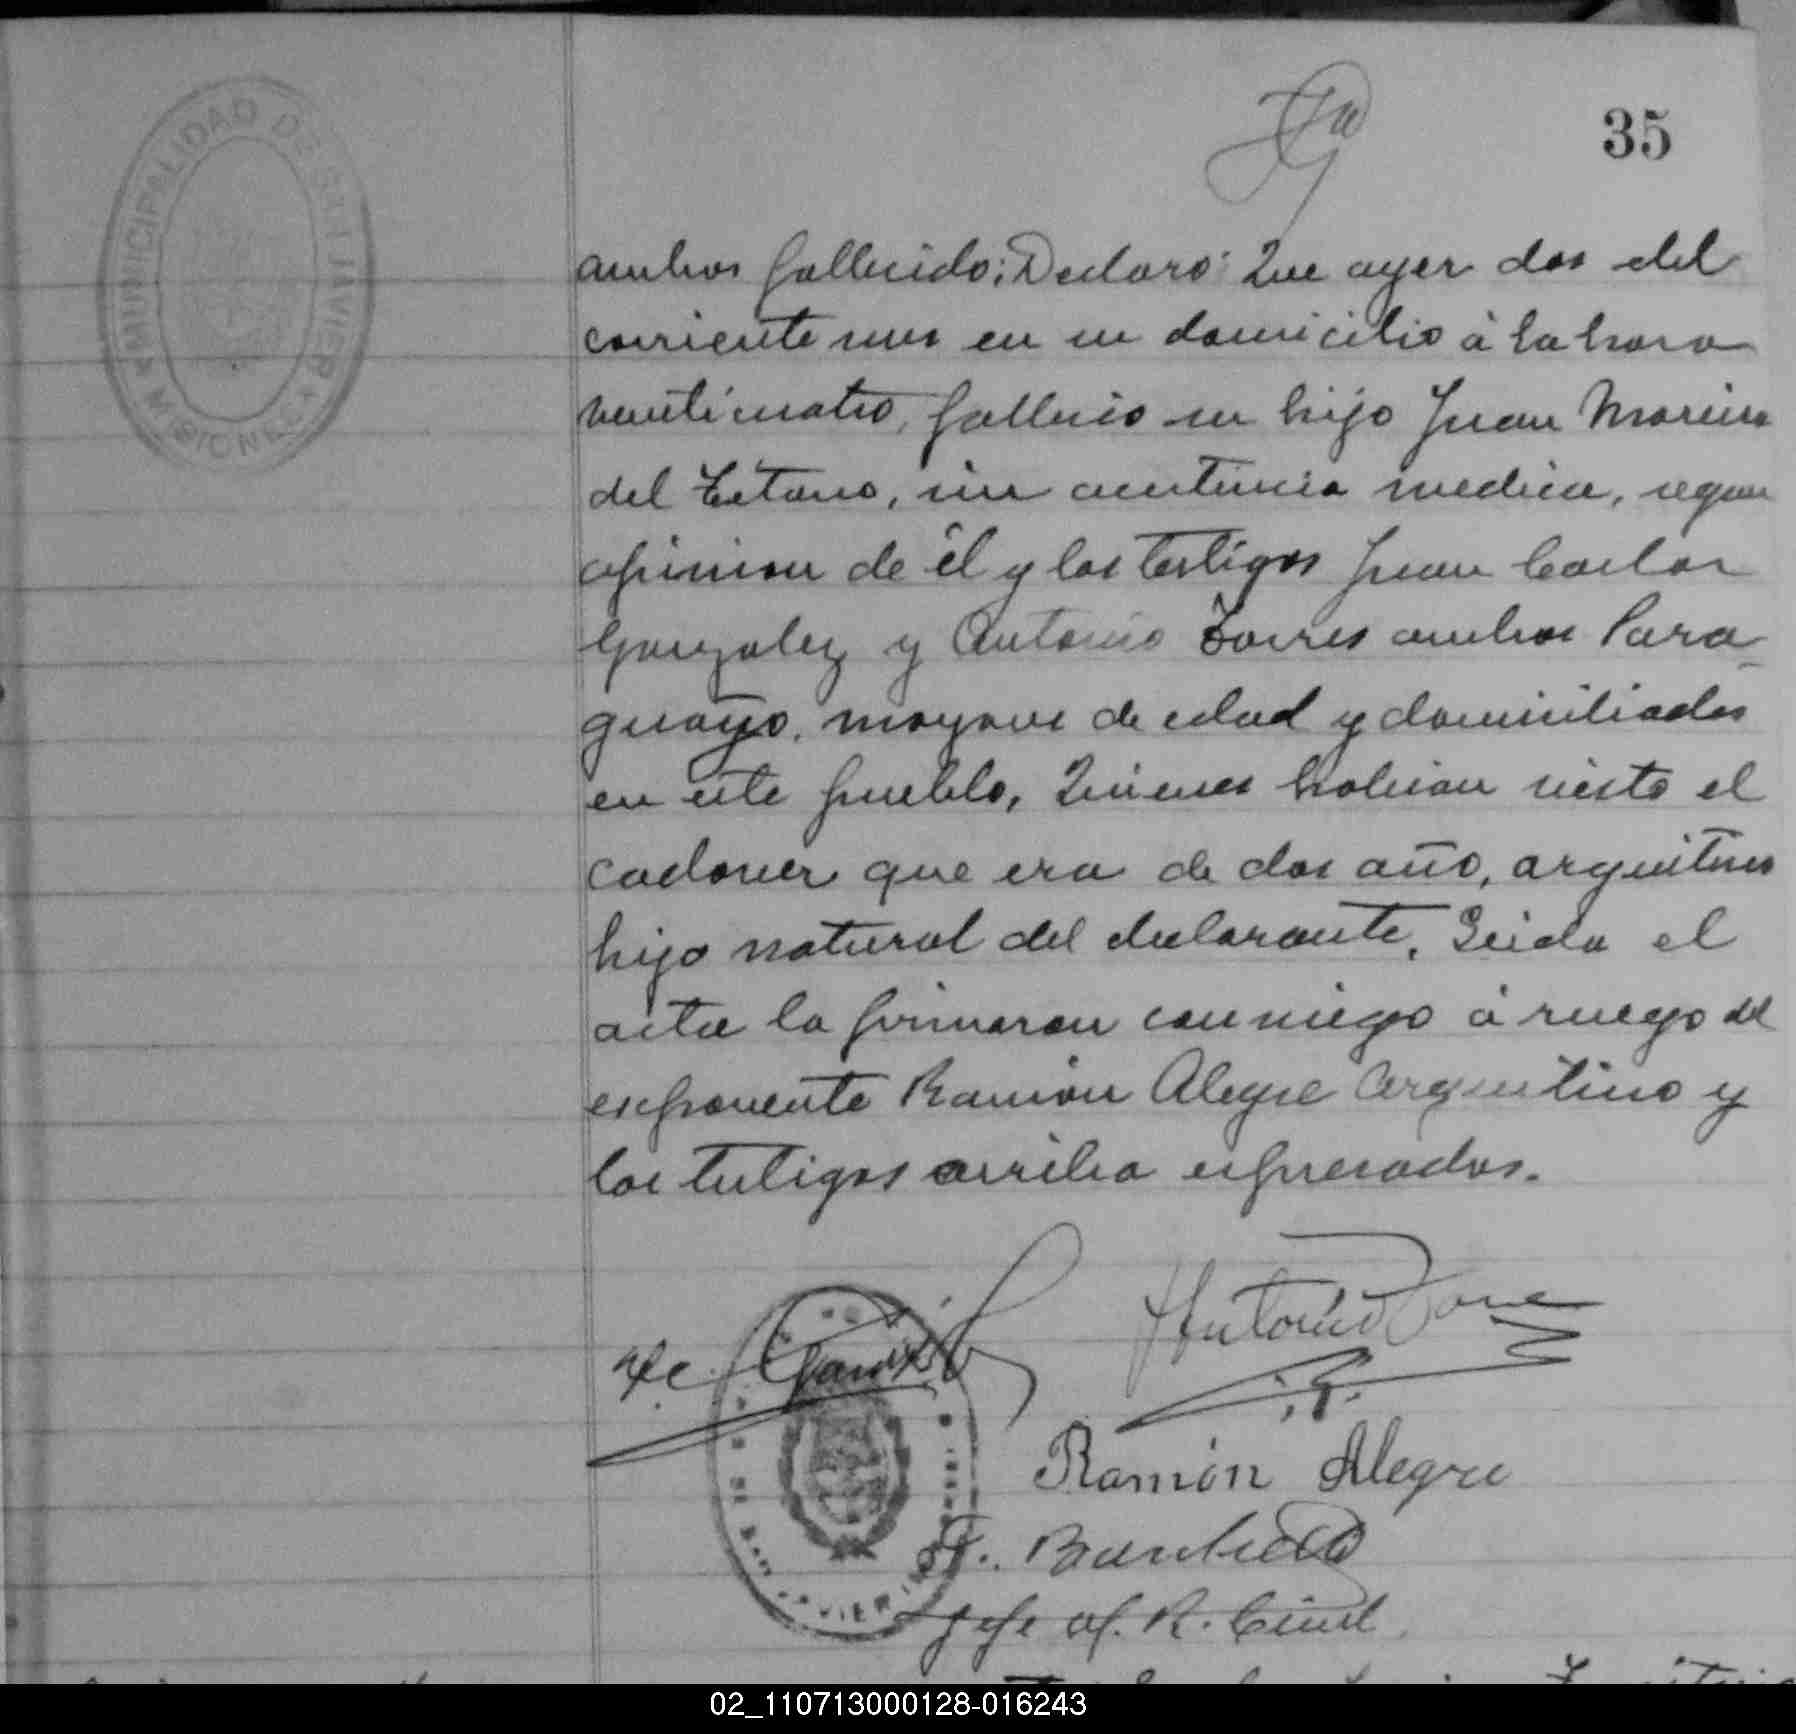 35
MUNICIPALIDAD DE SAN JAVIER
MISIONES
ambos fallecido; Declaro: Que ayer dos del
corriente mes en su domicilio á la hora
veinticuatro, fallecio su hijo Juan Moreira
del Tetano, sin asistencia medica, segun
opinion de él y los testigos Juan Carlos
Gonzalez y Antonio Torres ambos Para
guayo, mayores de edad y domiciliados
en este pueblo, Quienes habian visto el
cadaver que era de dos año, argentino
hijo natural del declarante. Leida el
acta la firmaron conmigo á ruego del
exponente Ramón Alegre Argentino y
los testigos arriba espresados.
Antonio Torre
Ramón Alegre
Jefe of. R. Civil
02_110713000128-016243